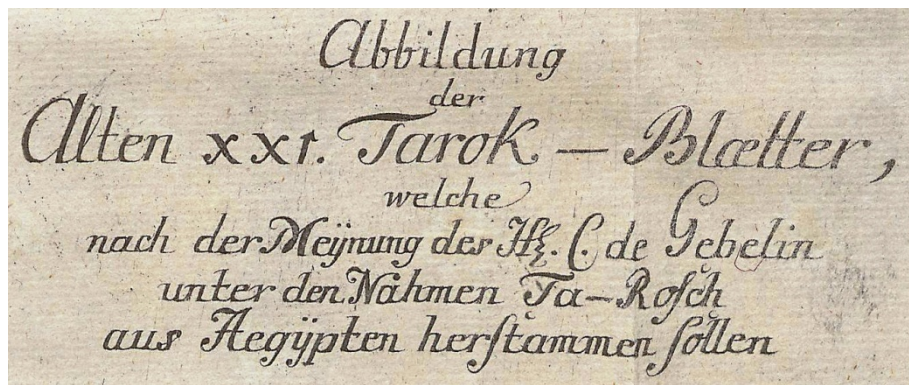 Abbildung
der
Alten XXI. Tarok – Blætter,
welche
nach der Meÿnung des Hr. C. de Gebelin
unter den Nahmen Ta-Rosch
aus Aegÿpten herstammen sollen